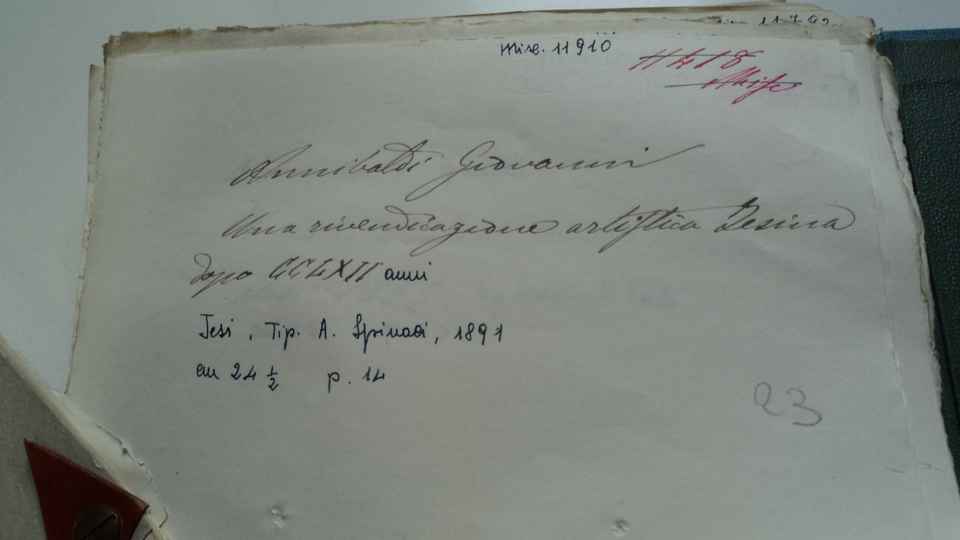 Misc. 11910
Annibaldi Giovanni
Una rivendicazione artistica Iesina
dopo CCLXII anni
Jesi, Tip. A. Spinaci, 1897
cm 24 1/2 p. 14
23